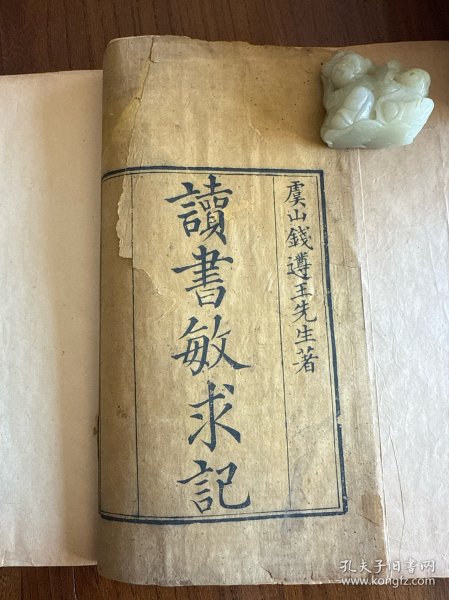 虞山錢遵王先生著
讀書敏求記
孔夫子旧书网
www.kongfz.com